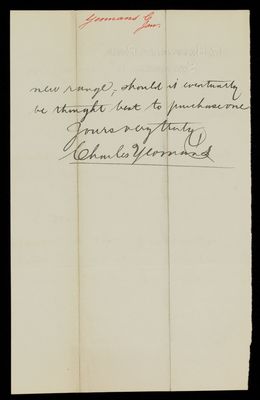 Yeomans C
Jan.
new range, should it eventually
be thought best to purchase one
Yours very truly
Charles Yeomans